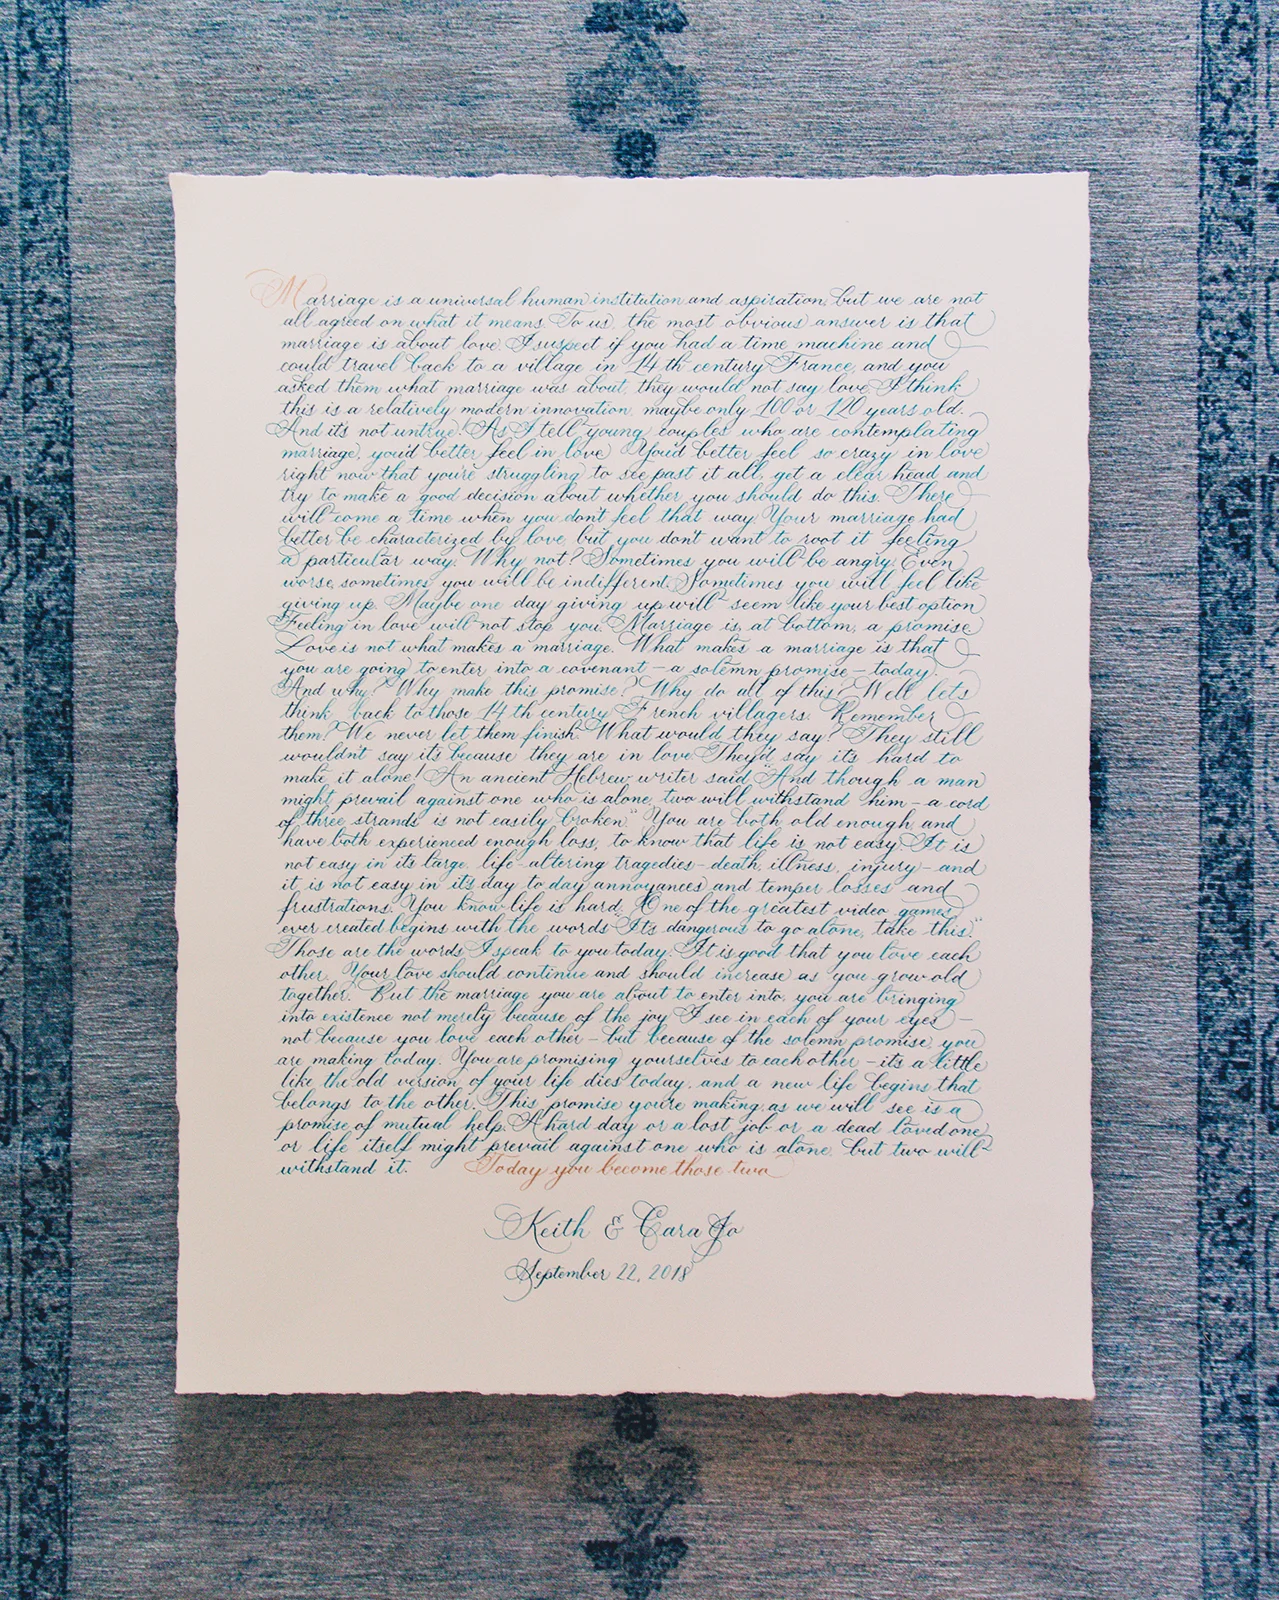 Marriage is a universal human institution and aspiration, but we are not
all agreed on what it means. To us, the most obvious answer is that
marriage is about love. I suspect if you had a time machine and
could travel back to a village in 14th century France, and you
asked them what marriage was about, they would not say love. I think
this is a relatively modern innovation, maybe only 100 or 120 years old.
And it's not untrue! As I tell young couples who are contemplating
marriage, you'd better feel in love. You'd better feel so crazy in love
right now that you're struggling to see past it all, get a clear head and
try to make a good decision about whether you should do this. There
will come a time when you don't feel that way. Your marriage had
better be characterized by love, but you don't want to root it feeling
a particular way. Why not? Sometimes you will be angry. Even
worse, sometimes you will be indifferent. Sometimes you will feel like
giving up. Maybe one day giving up will seem like your best option
Feeling in love will not stop you. Marriage is, at bottom, a promise
Love is not what makes a marriage. What makes a marriage is that
you are going to enter into a covenant – a solemn promise – today.
And why? Why make this promise? Why do all of this? Well let's
think back to those 14th century French villagers. Remember
them? We never let them finish. What would they say? They still
wouldn't say it's because they are in love. They'd say it's hard to
make it alone! An ancient Hebrew writer said "And though a man
might prevail against one who is alone, two will withstand him – a cord
of three strands is not easily broken." You are both old enough, and
have both experienced enough loss, to know that life is not easy. It is
not easy in its large, life-altering tragedies – death, illness, injury – and
it is not easy in its day to day annoyances and temper losses and
frustrations. You know life is hard. One of the greatest video games
ever created begins with the words "It's dangerous to go alone, take this."
Those are the words I speak to you today. It is good that you love each
other. Your love should continue and should increase as you grow old
together. But the marriage you are about to enter into, you are bringing
into existence not merely because of the joy I see in each of your eyes –
not because you love each other – but because of the solemn promise you
are making today. You are promising yourselves to each other – it's a little
like the old version of your life dies today, and a new life begins that
belongs to the other. This promise you're making, as we will see is a
promise of mutual help. A hard day or a lost job or a dead loved one
or life itself might prevail against one who is alone, but two will
withstand it. Today you become those two
Keith & Cara Jo
September 22, 2018